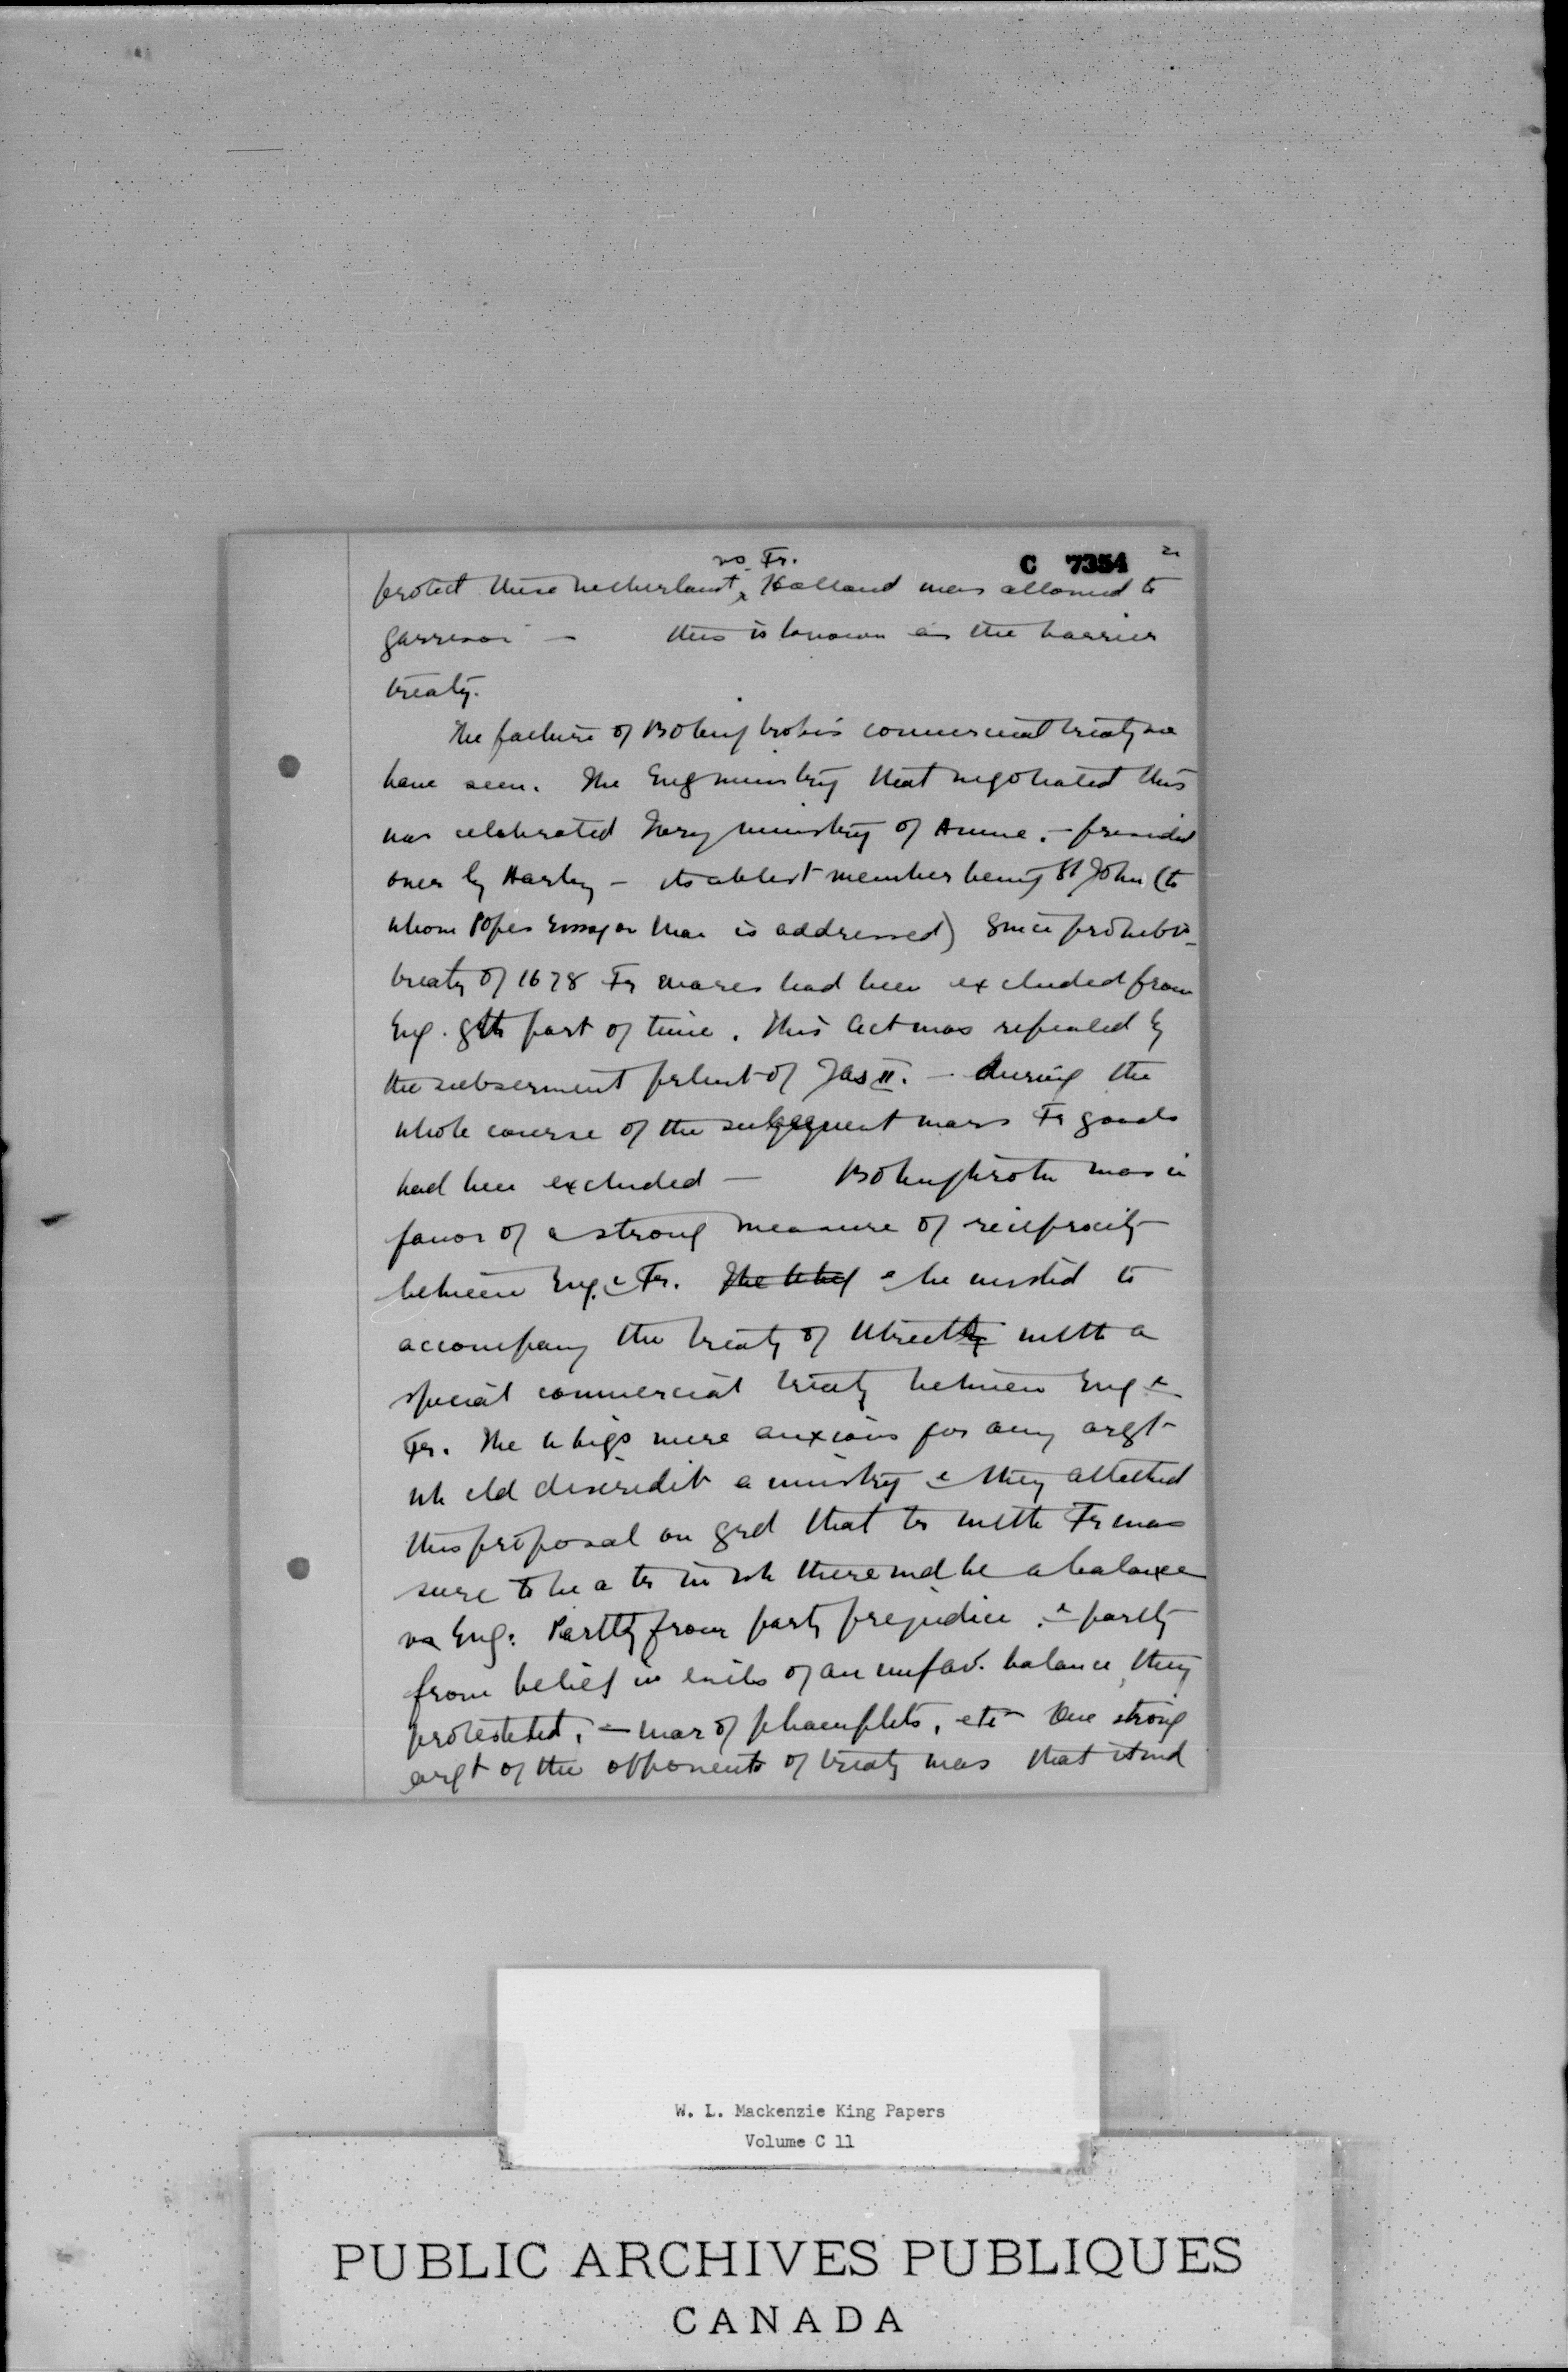 C 7354
vs. Fr.
protect these netherlands, Holland was allowed to
garrison — this is known as the barrier
treaty.
The failure of Bolingbroke's commercial treaty we
have seen. The Eng ministry that negotiated this
was celebrated Tory ministry of Anne. – presided
over by Harley – its ablest member being St John (to
whom Popes Essay on Man is addressed) Since prohibi-
treaty of 1678 Fr wares had been excluded from
Eng. gtr part of time. This Act was repealed by
the subservient prlmt of Jas II. – during the
whole course of the subsequent wars Fr goods
had been excluded — Bolingbroke was in
favor of a strong measure of reciprocity
between Eng. & Fr. The Whig & he wished to
accompany the treaty of Utrecht with a
special commercial treaty between Eng &
Fr. The Whigs were anxious for any argt
wh cld discredit a ministry & they attacked
this proposal on grd that tr with Fr was
sure to be a tr in wh there wd be a balance
vs Eng: Partly from party prejudice, & partly
from belief in evils of an unfav. balance, they
protested, – war of phamplets, etc One strong
argt of the opponents of treaty was that it wd
W. L. Mackenzie King Papers
Volume C 11
PUBLIC ARCHIVES PUBLIQUES
CANADA